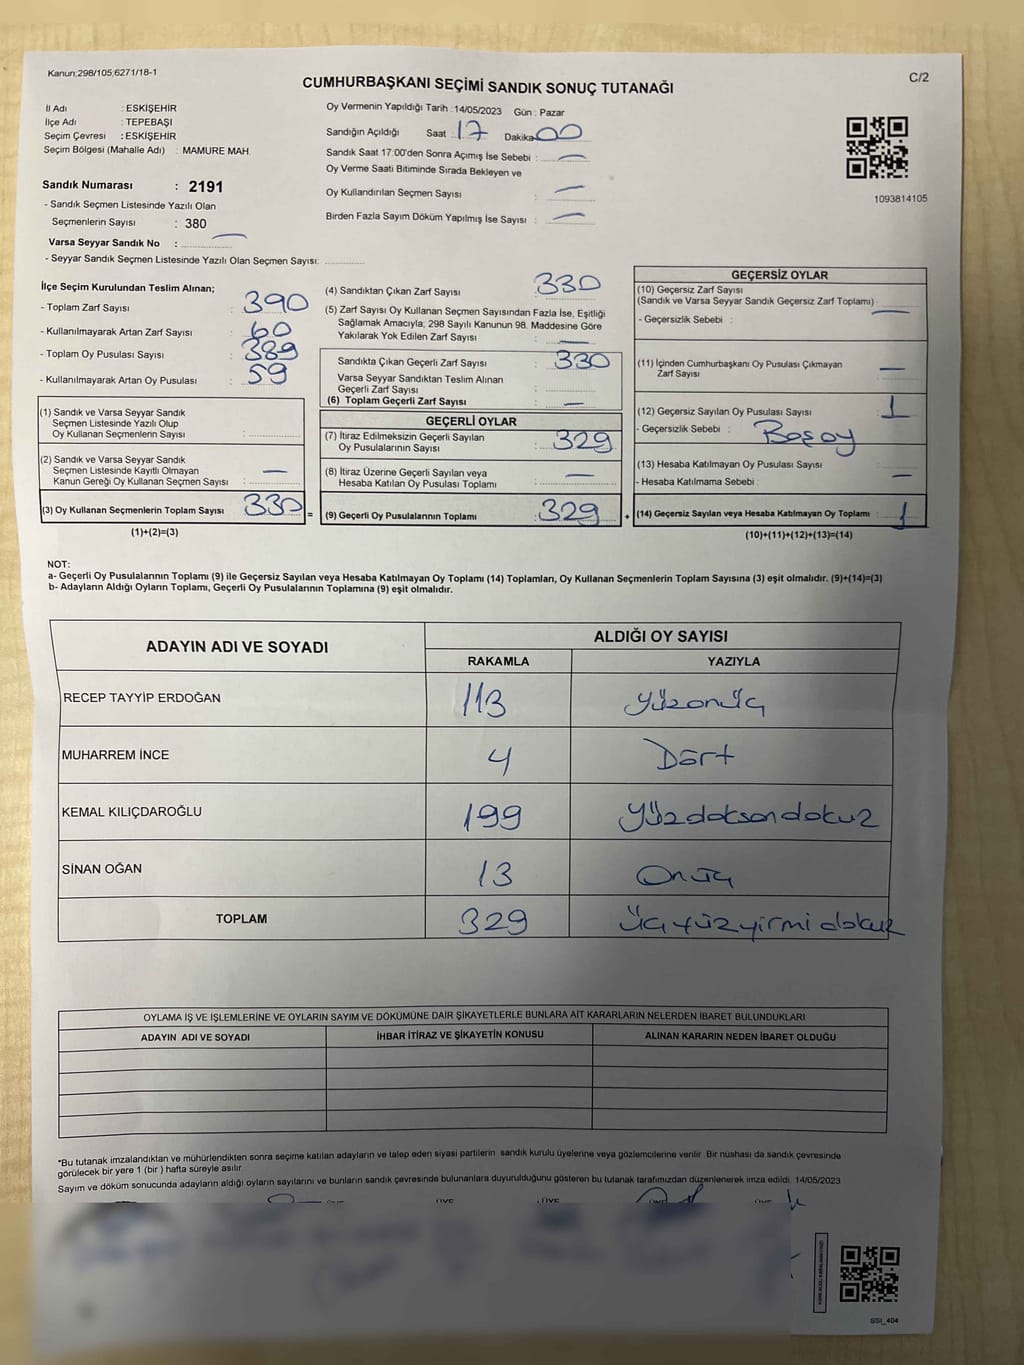 Kanun:298/105,6271/18-1
C/2
CUMHURBAŞKANI SEÇİMİ SANDIK SONUÇ TUTANAĞI
İl Adı : ESKİŞEHİR
İlçe Adı : TEPEBAŞI
Seçim Çevresi : ESKİŞEHİR
Seçim Bölgesi (Mahalle Adı) : MAMURE MAH.
Oy Vermenin Yapıldığı Tarih : 14/05/2023 Gün : Pazar
Sandığın Açıldığı Saat : 17 Dakika 00
Sandık Saat 17:00'den Sonra Açımış İse Sebebi : —
Oy Verme Saati Bitiminde Sırada Bekleyen ve
Oy Kullandırılan Seçmen Sayısı : —
Birden Fazla Sayım Döküm Yapılmış İse Sayısı : —
1093814105
Sandık Numarası : 2191
- Sandık Seçmen Listesinde Yazılı Olan
Seçmenlerin Sayısı : 380
Varsa Seyyar Sandık No : —
- Seyyar Sandık Seçmen Listesinde Yazılı Olan Seçmen Sayısı:
İlçe Seçim Kurulundan Teslim Alınan;
- Toplam Zarf Sayısı : 390
- Kullanılmayarak Artan Zarf Sayısı : 60
- Toplam Oy Pusulası Sayısı : 389
- Kullanılmayarak Artan Oy Pusulası : 59
(1) Sandık ve Varsa Seyyar Sandık
Seçmen Listesinde Yazılı Olup
Oy Kullanan Seçmenlerin Sayısı :
(2) Sandık ve Varsa Seyyar Sandık
Seçmen Listesinde Kayıtlı Olmayan
Kanun Gereği Oy Kullanan Seçmen Sayısı : —
(3) Oy Kullanan Seçmenlerin Toplam Sayısı 330 =
(1)+(2)=(3)
(4) Sandıktan Çıkan Zarf Sayısı : 330
(5) Zarf Sayısı Oy Kullanan Seçmen Sayısından Fazla İse, Eşitliği
Sağlamak Amacıyla; 298 Sayılı Kanunun 98. Maddesine Göre
Yakılarak Yok Edilen Zarf Sayısı : —
Sandıkta Çıkan Geçerli Zarf Sayısı : 330
Varsa Seyyar Sandıktan Teslim Alınan
Geçerli Zarf Sayısı :
(6) Toplam Geçerli Zarf Sayısı : —
GEÇERLİ OYLAR
(7) İtiraz Edilmeksizin Geçerli Sayılan
Oy Pusulalarının Sayısı : 329
(8) İtiraz Üzerine Geçerli Sayılan veya
Hesaba Katılan Oy Pusulası Toplamı : —
(9) Geçerli Oy Pusulalarının Toplamı : 329 +
GEÇERSİZ OYLAR
(10) Geçersiz Zarf Sayısı
(Sandık ve Varsa Seyyar Sandık Geçersiz Zarf Toplamı) : —
- Geçersizlik Sebebi :
(11) İçinden Cumhurbaşkanı Oy Pusulası Çıkmayan
Zarf Sayısı : —
(12) Geçersiz Sayılan Oy Pusulası Sayısı : 1
- Geçersizlik Sebebi :
(13) Hesaba Katılmayan Oy Pusulası Sayısı : —
- Hesaba Katılmama Sebebi :
(14) Geçersiz Sayılan veya Hesaba Katılmayan Oy Toplamı : 1
(10)+(11)+(12)+(13)=(14)
NOT:
a- Geçerli Oy Pusulalarının Toplamı (9) ile Geçersiz Sayılan veya Hesaba Katılmayan Oy Toplamı (14) Toplamları, Oy Kullanan Seçmenlerin Toplam Sayısına (3) eşit olmalıdır. (9)+(14)=(3)
b- Adayların Aldığı Oyların Toplamı, Geçerli Oy Pusulalarının Toplamına (9) eşit olmalıdır.
ADAYIN ADI VE SOYADI
ALDIĞI OY SAYISI
RAKAMLA YAZIYLA
RECEP TAYYİP ERDOĞAN 113 Yüzonüç
MUHARREM İNCE 4 Dört
KEMAL KILIÇDAROĞLU 199 Yüzdoksandokuz
SİNAN OĞAN 13 Onüç
TOPLAM 329 Üçyüzyirmidokuz
OYLAMA İŞ VE İŞLEMLERİNE VE OYLARIN SAYIM VE DÖKÜMÜNE DAİR ŞİKAYETLERLE BUNLARA AİT KARARLARIN NELERDEN İBARET BULUNDUKLARI
ADAYIN ADI VE SOYADI İHBAR İTİRAZ VE ŞİKAYETİN KONUSU ALINAN KARARIN NEDEN İBARET OLDUĞU
*Bu tutanak imzalandıktan ve mühürlendikten sonra seçime katılan adayların ve talep eden siyasi partilerin sandık kurulu üyelerine veya gözlemcilerine verilir. Bir nüshası da sandık çevresinde
görülecek bir yere 1 (bir ) hafta süreyle asılır.
Sayım ve döküm sonucunda adayların aldığı oyların sayılarını ve bunların sandık çevresinde bulunanlara duyurulduğunu gösteren bu tutanak tarafımızdan düzenlenerek imza edildi. 14/05/2023
ÜYE ÜYE ÜYE ÜYE ÜYE
SSI_404